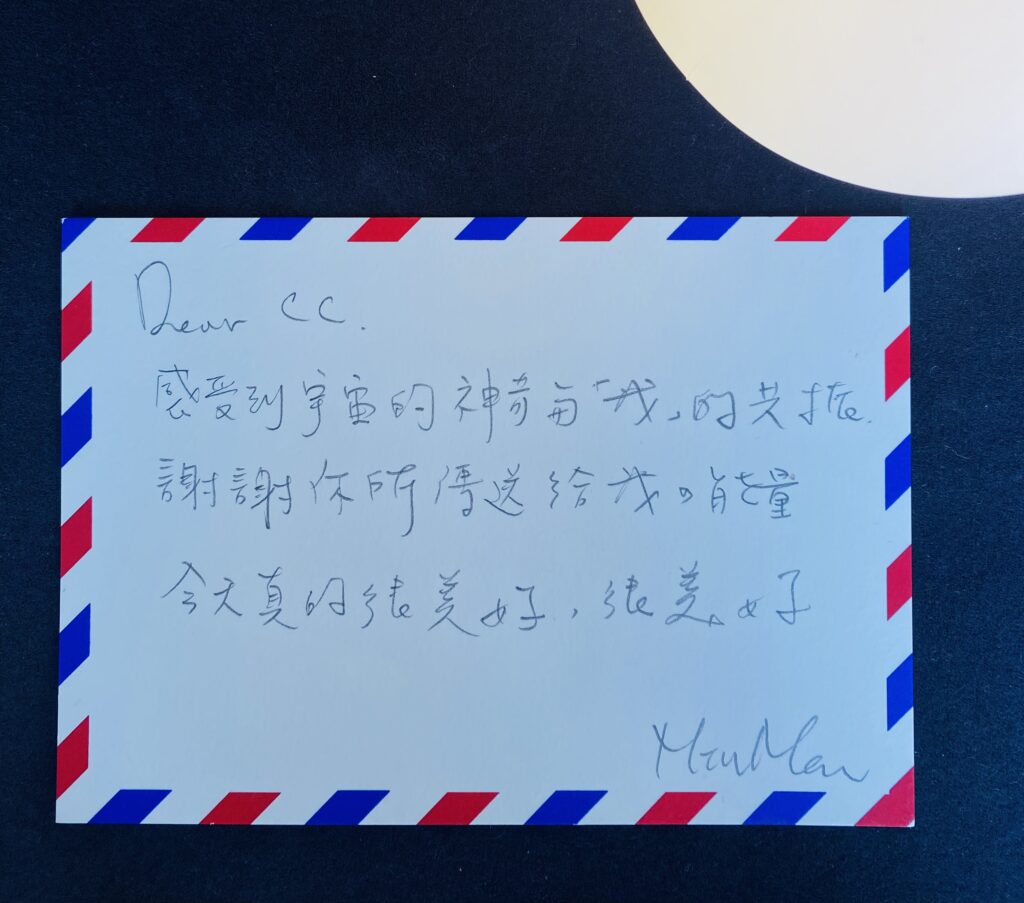 Dear CC.
感受到宇宙的神奇與「我」的共振.
謝謝你所傳送給我的能量
今天真的很美好，很美好
MinMan